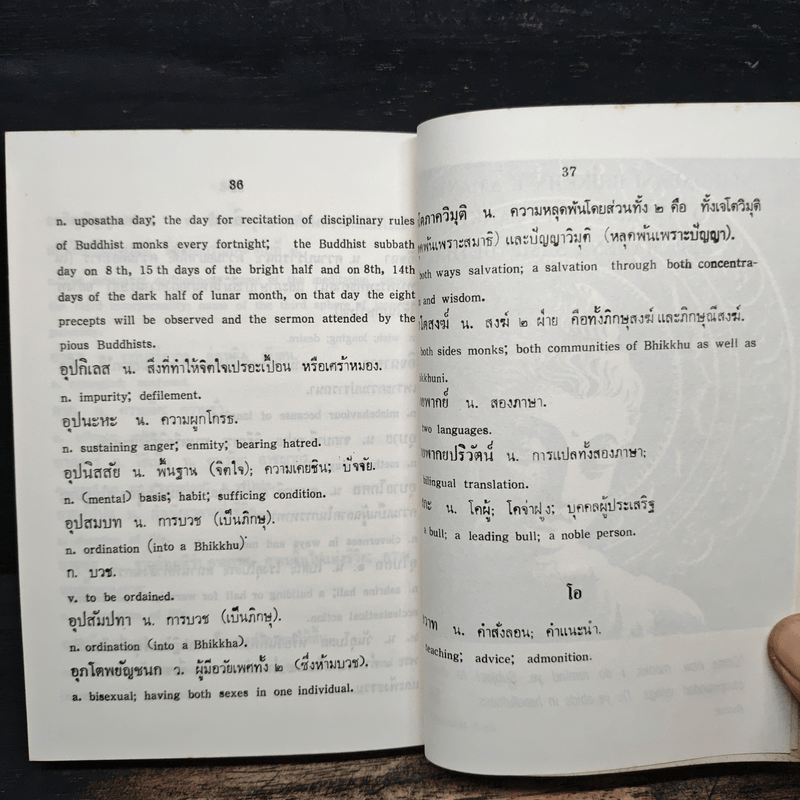 36
n. uposatha day; the day for recitation of disciplinary rules
of Buddhist monks every fortnight; the Buddhist subbath
day on 8 th, 15 th days of the bright half and on 8th, 14th
days of the dark half of lunar month, on that day the eight
precepts will be observed and the sermon attended by the
pious Buddhists.
อุปกิเลส น. สิ่งที่ทำให้จิตใจเปรอะเปื้อน หรือเศร้าหมอง.
n. impurity; defilement.
อุปนะหะ น. ความผูกโกรธ.
n. sustaining anger; enmity; bearing hatred.
อุปนิสสัย น. พื้นฐาน (จิตใจ); ความเคยชิน; ปัจจัย.
n. (mental) basis; habit; sufficing condition.
อุปสมบท น. การบวช (เป็นภิกษุ).
n. ordination (into a Bhikkhu)
ก. บวช.
v. to be ordained.
อุปสัมปทา น. การบวช (เป็นภิกษุ).
n. ordination (into a Bhikkha).
อุภโตพยัญชนก ว. ผู้มีอวัยเพศทั้ง ๒ (ซึ่งห้ามบวช).
a. bisexual; having both sexes in one individual.
37
ภาควิมุติ น. ความหลุดพ้นโดยส่วนทั้ง ๒ คือ ทั้งเจโตวิมุติ
พ้นเพราะสมาธิ) และปัญญาวิมุติ (หลุดพ้นเพราะปัญญา).
both ways salvation; a salvation through both concentra-
and wisdom.
สงฆ์ น. สงฆ์ ๒ ฝ่าย คือทั้งภิกษุสงฆ์ และภิกษุณีสงฆ์.
both sides monks; both communities of Bhikkhu as well as
kkhuni.
พากย์ น. สองภาษา.
two languages.
พากยปริวัตน์ น. การแปลทั้งสองภาษา;
bilingual translation.
น. โคผู้; โคจ่าฝูง; บุคคลผู้ประเสริฐ
a bull; a leading bull; a noble person.
โอ
วาท น. คำสั่งสอน; คำแนะนำ.
teaching; advice; admonition.